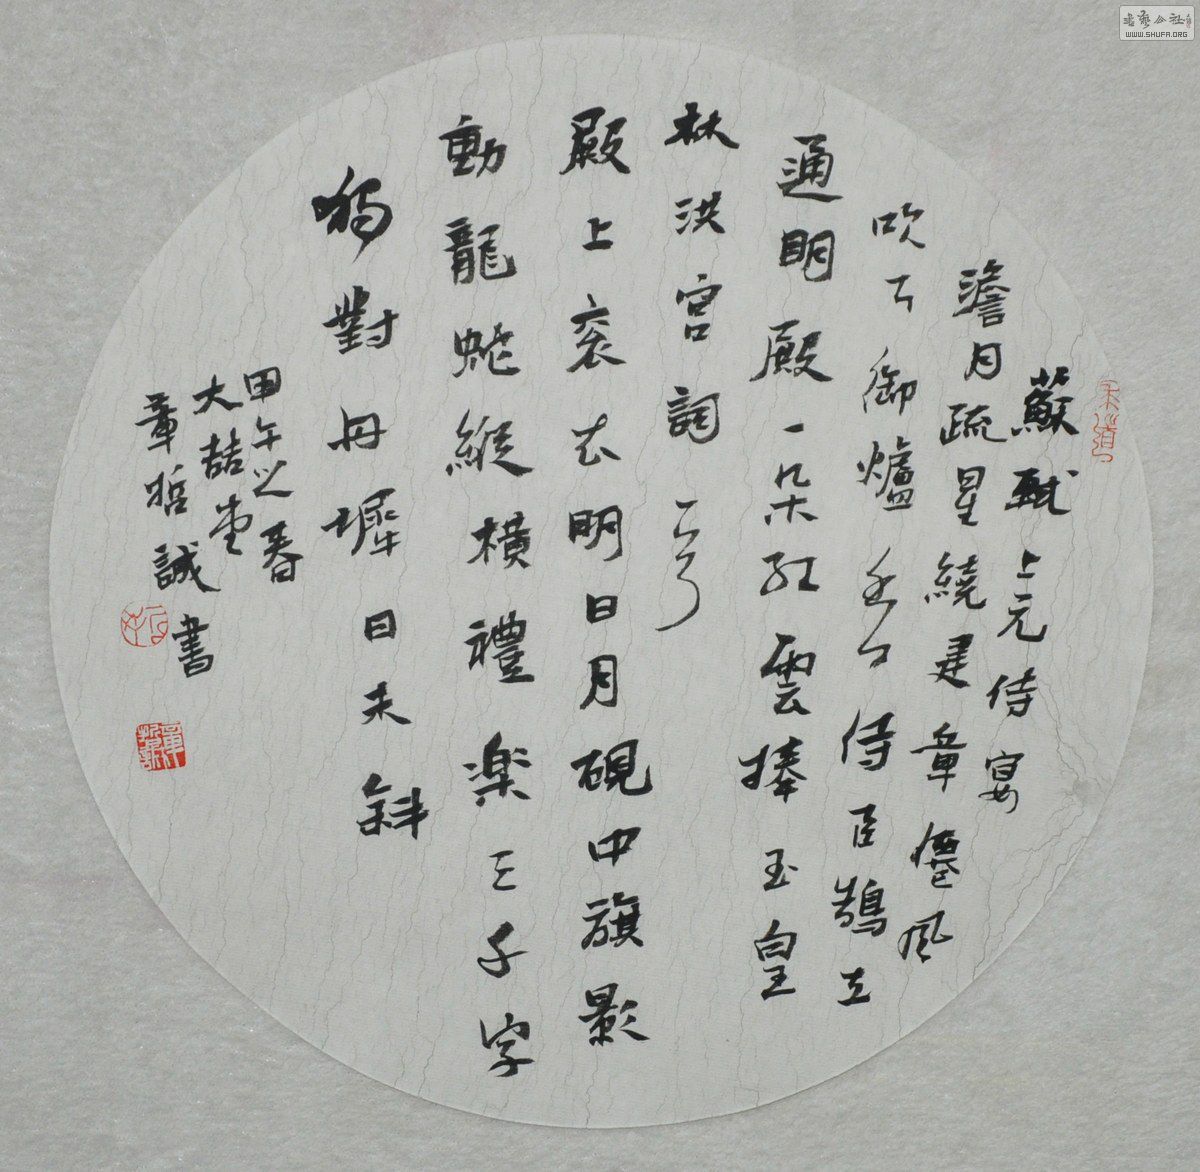 蘇軾上元侍宴
澹月疏星繞建章僊風
吹下御爐香侍臣鵠立
通明殿一朵紅雲捧玉皇
林洪宮詞一首
殿上袞衣明日月硯中旗影
動龍蛇縱橫禮樂三千字
獨對丹墀日未斜
甲午之春
大喆堂
章哲誠書
书艺公社
WWW.SHUFA.ORG